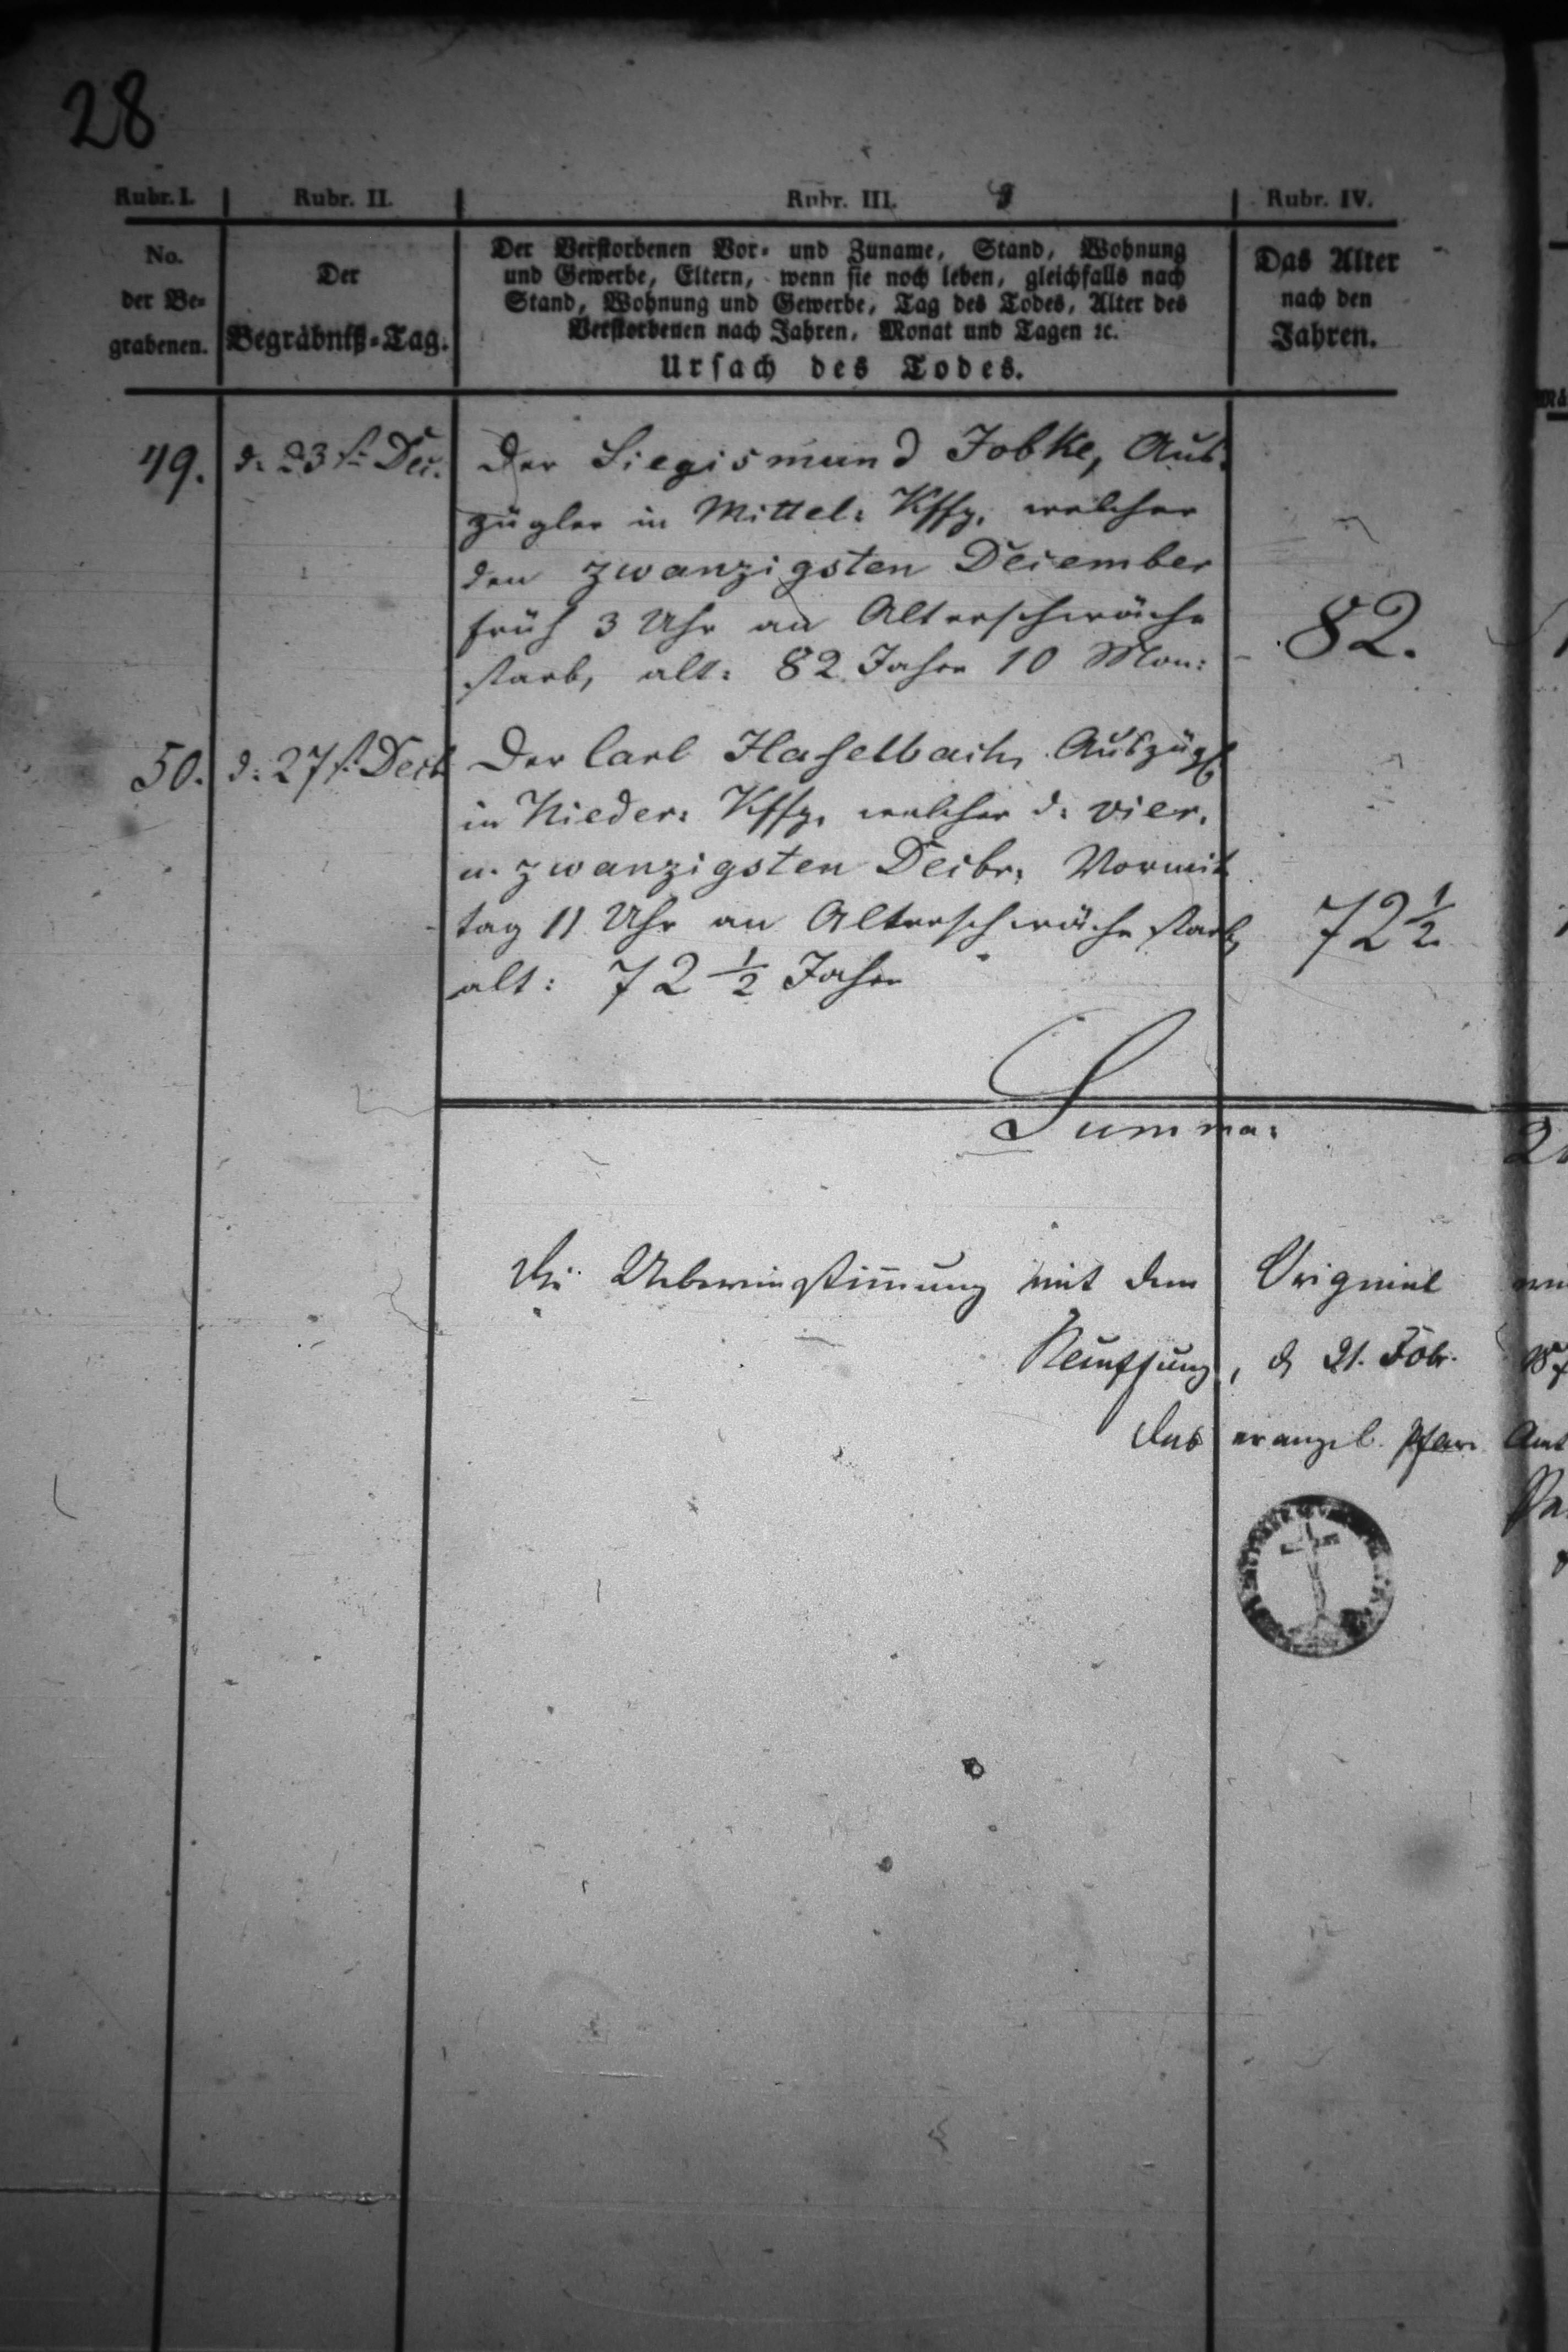 28
Rubr. I. Rubr. II. Rubr. III. Rubr. IV.
No. der Be= grabenen.
Der Begräbniß=Tag.
Der Verstorbenen Vor= und Zuname, Stand, Wohnung
und Gewerbe, Eltern, wenn sie noch leben, gleichfalls nach
Stand, Wohnung und Gewerbe, Tag des Todes, Alter des
Verstorbenen nach Jahren, Monat und Tagen ꝛc.
Ursach des Todes.
Das Alter
nach den
Jahren.
49. d: 23st: Dec. Der Siegismund Jobke, Aus=
zügler in Mittel: Kffg. welcher
den zwanzigsten December
früh 3 Uhr an Alterschwäche
starb, alt: 82 Jahre 10 Mon: 82.
50. d: 27st. Decb Der Carl Haselbach, Auszügl
in Nieder: Kffg. welcher d: vier.
u. zwanzigsten Decbr: Vormit
tag 11 Uhr an Alterschwäche starb,
alt: 72 1/2 Jahre 72 1/2
Summa:
Die Uebereinstimmung mit dem Original
d 21. Febr.
das evangel. Pfarr Amt